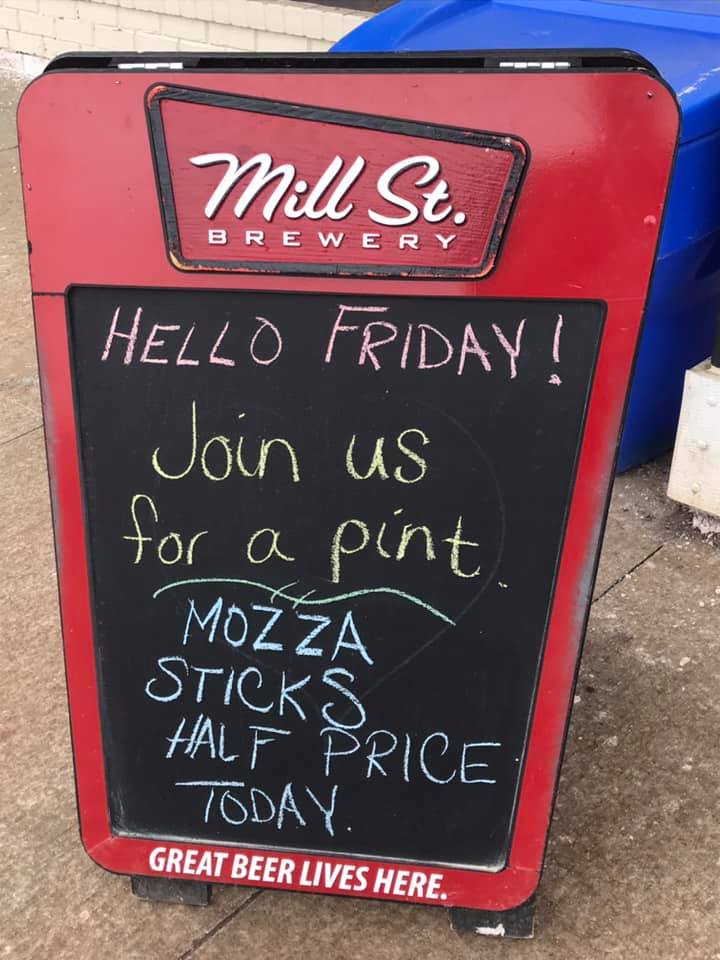 Mill St.
BREWERY
HELLO FRIDAY!
Join us
for a pint.
MOZZA
STICKS
HALF PRICE
TODAY.
GREAT BEER LIVES HERE.